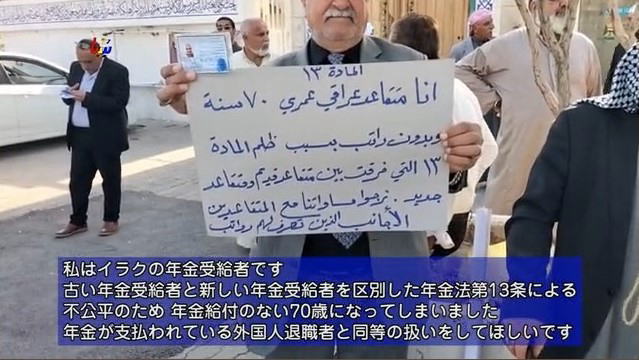 المادة ١٣
انا متقاعد عراقي عمري ٧٠ سنة
وبدون راتب بسبب ظلم المادة
١٣ التي فرقت بين متقاعد قديم ومتقاعد
جديد. نرجوا مساواتنا مع المتقاعدين
الأجانب الذين تصرف لهم رواتب
私はイラクの年金受給者です
古い年金受給者と新しい年金受給者を区別した年金法第13条による
不公平のため 年金給付のない70歳になってしまいました
年金が支払われている外国人退職者と同等の扱いをしてほしいです